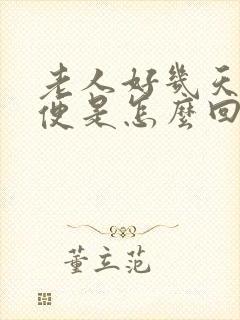 老人好幾天
便是怎麼回
董立范